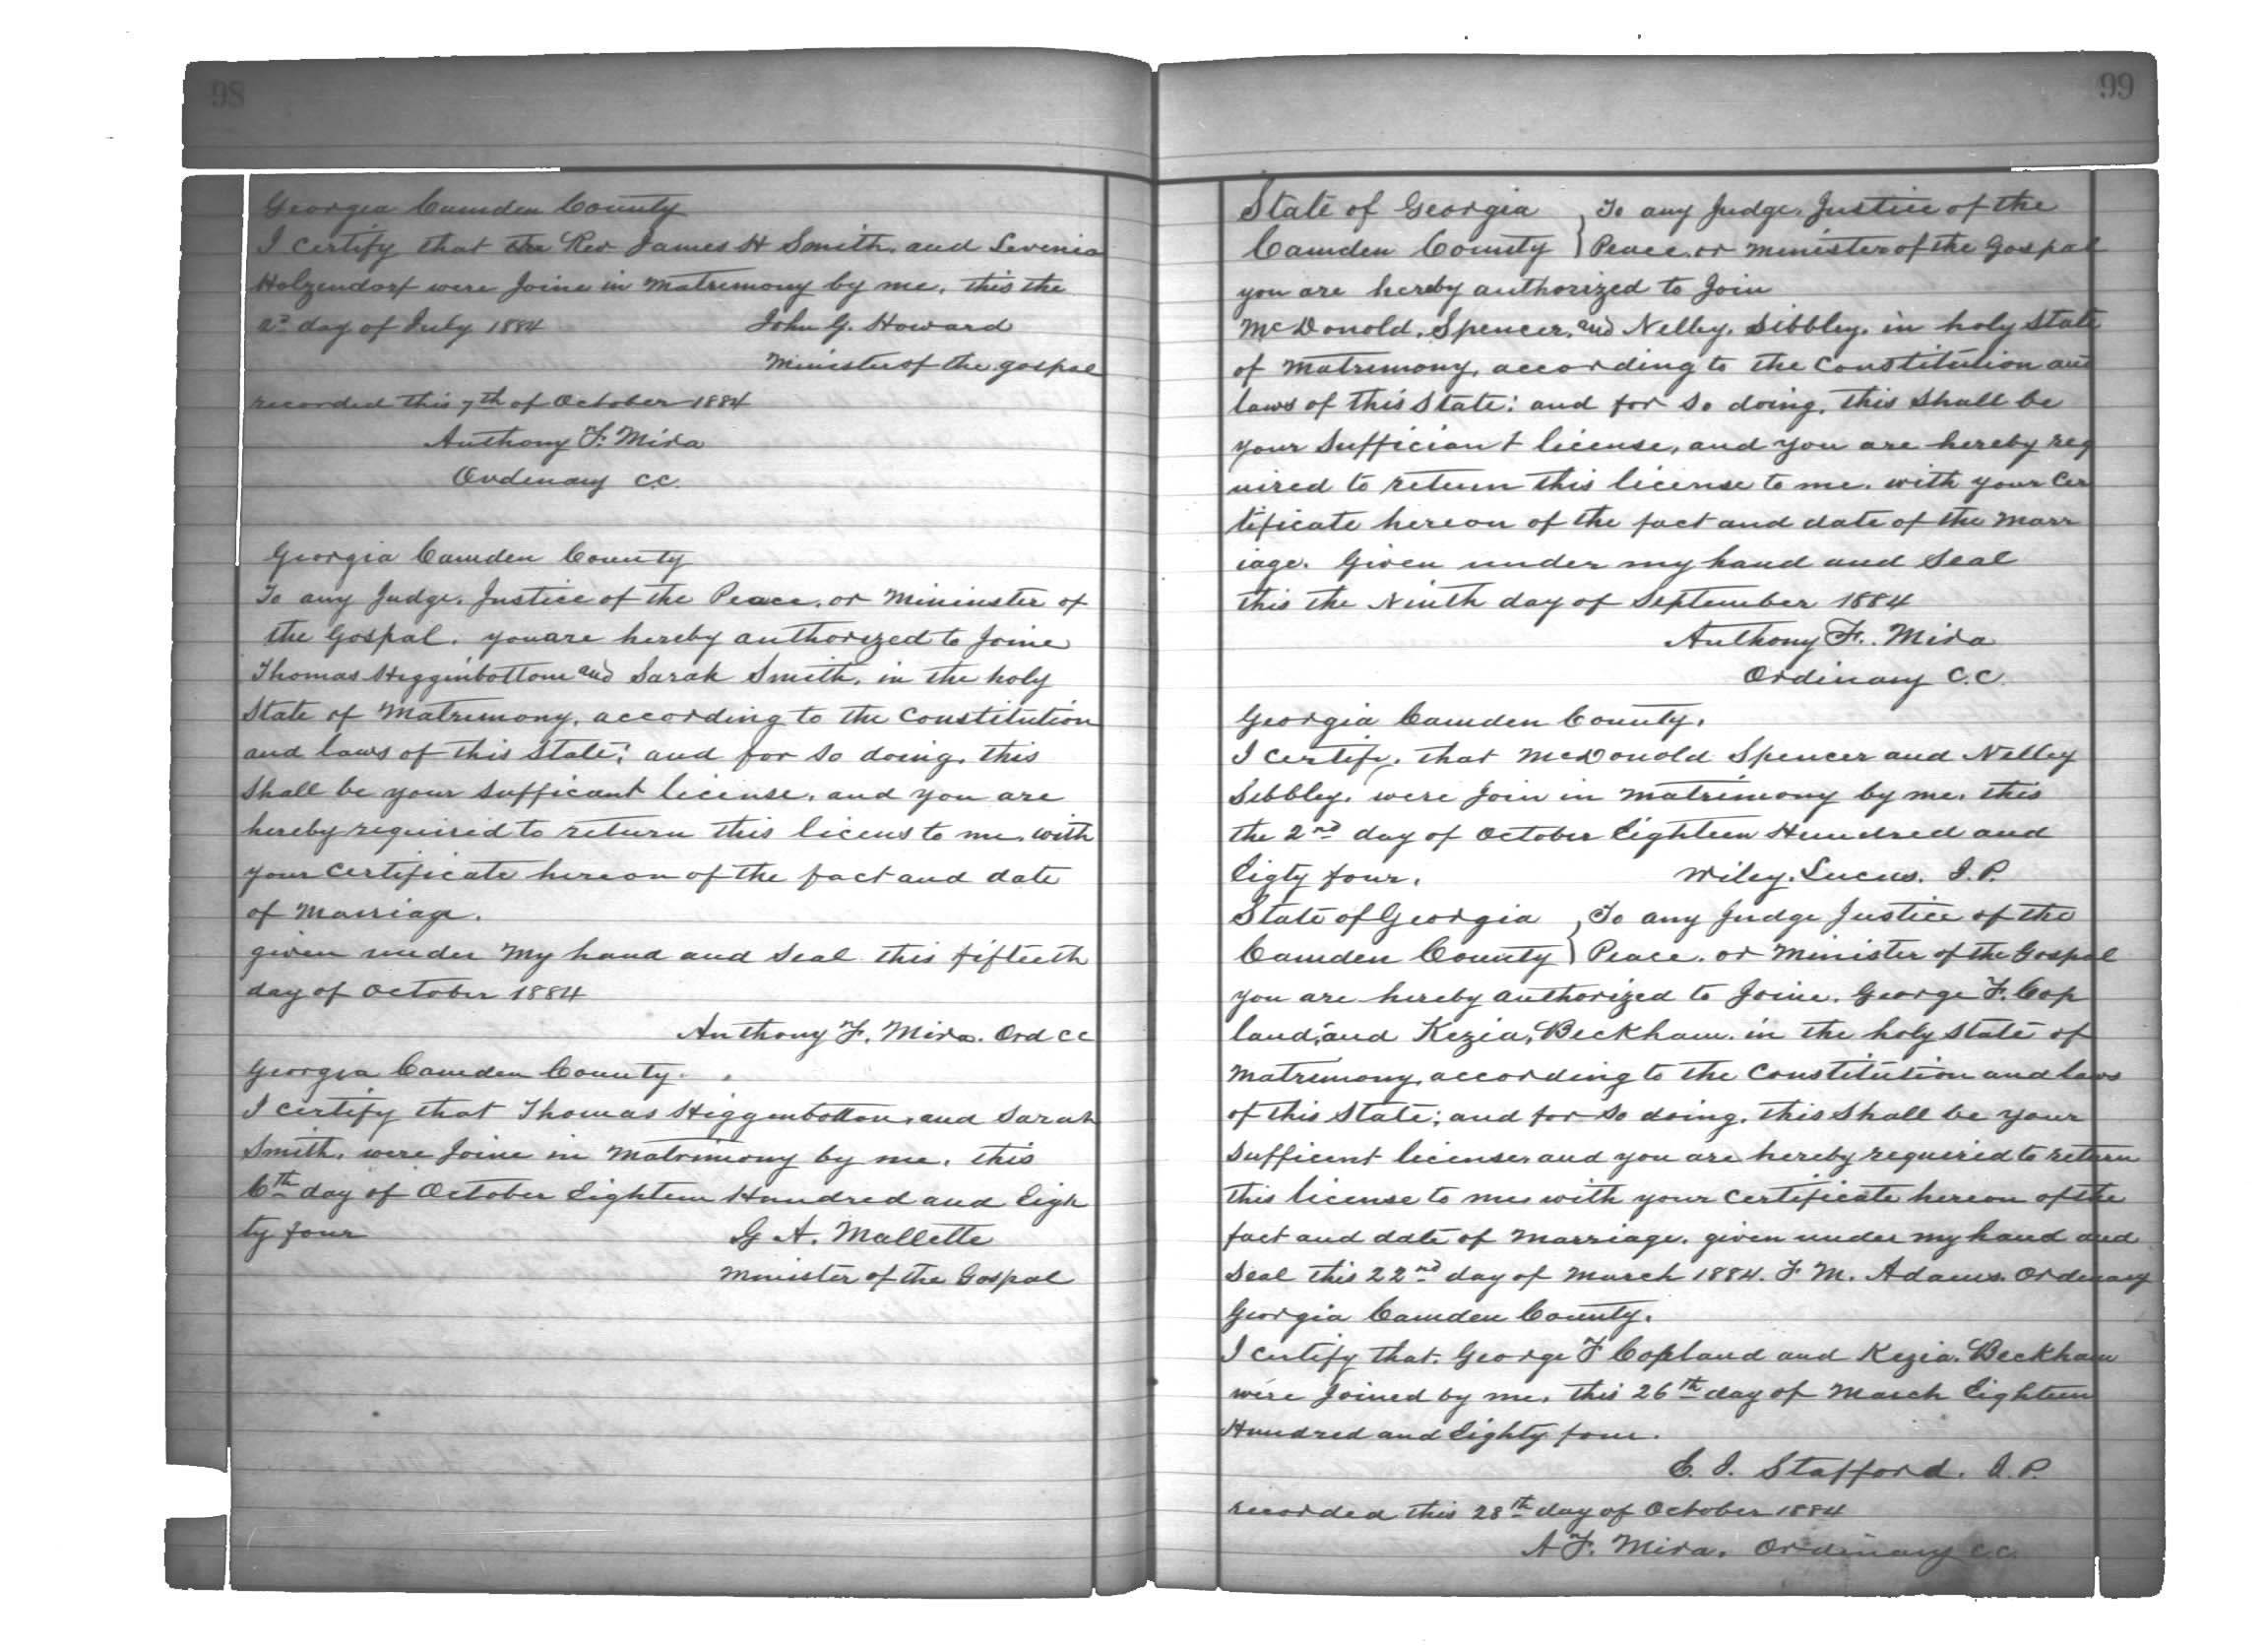 98
Georgia Camden County
I Certify that the Rev James H Smith, and Levenia
Holzendorf were Joine in Matremony by me, this the
2d day of July 1884 John G. Howard
Minister of the gospal
recorded this 7th of October 1884
Anthony F. Mira
Ordinary C.C.
Georgia Camden County
To any Judge, Justice of the Peace, or Mininster of
the Gospal. you are hereby authorized to Joine
Thomas Higginbottom and Sarah Smith, in the holy
State of Matremony, according to the Constitution
and laws of this State; and for so doing, this
Shall be your sufficant license, and you are
hereby required to return this licens to me, with
your Certificate hereon of the fact and date
of Marriage.
given under My hand and Seal this fifteeth
day of October 1884
Anthony F. Mira. Ord CC
Georgia Camden County.
I Certify that Thomas Higgenbotton, and Sarah
Smith, were Joine in Matrimony by me, this
6th day of October Eighteen Hundred and Eigh
ty four G A. Mallette
Minister of the Gospal
99
State of Georgia } To any Judge, Justice of the
Camden County } Peace, or Minister of the Gospal
you are hereby authorized to Join
McDonold, Spencer, and Nelley, Sibbley, in holy State
of Matremony, according to the Constitution and
laws of this State; and for so doing, this Shall be
your Sufficiant license, and you are hereby req
uired to return this license to me, with your Cer
tificate hereon of the fact and date of the Marr
iage. Given under my hand and Seal
this the Ninth day of September 1884
Anthony F. Mira
Ordinary C.C.
Georgia Camden County.
I Certify, that McDonold Spencer and Nelley
Sibbley, were Join in Matrimony by me, this
the 2nd day of October Eighteen Hundred and
Eigty four. Wiley. Lucus. J.P.
State of Georgia } To any Judge Justice of the
Camden County } Peace, or Minister of the Gospal
you are hereby authorized to Joine, George F. Cop
land, and Kezia, Beckham, in the holy State of
Matremony, according to the Constitution and laws
of this State; and for so doing, this Shall be your
Sufficent license, and you are hereby required to return
this license to me, with your Certificate hereon of the
fact and date of Marriage, given under my hand and
Seal this 22nd day of March 1884. F. M. Adams. Ordinary
Georgia Camden County.
I Certify that, George F Copland and Kezia, Beckham
were Joined by me, this 26th day of March Eighteen
Hundred and Eighty four.
E. J. Stafford. J.P.
recorded this 28th day of October 1884
A F. Mira. Ordinary C.C.